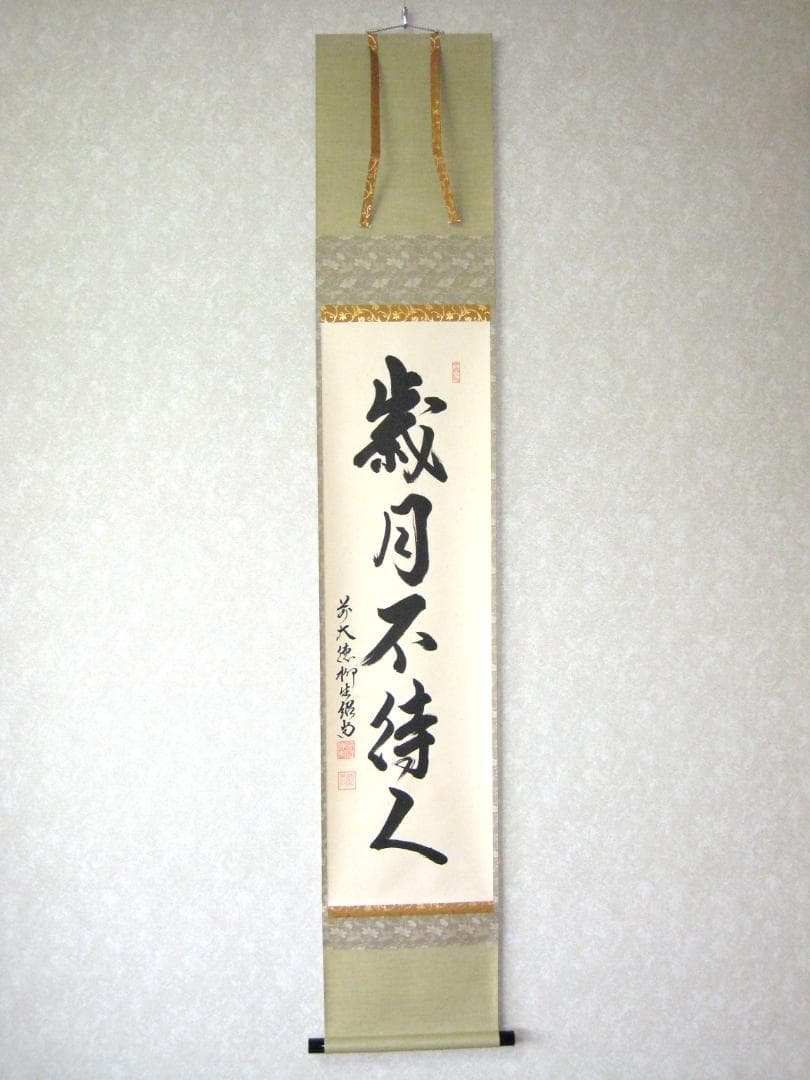 歳月不待人
前大徳柳生紹尚